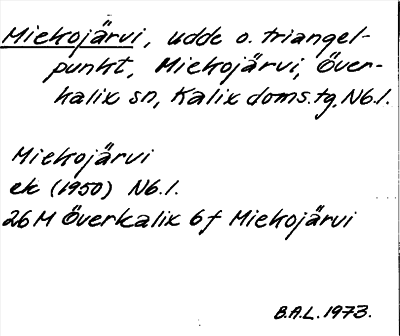 Miekojärvi, udde o. triangel-
punkt, Miekojärvi, Över-
kalix sn, Kalix doms.tg. Nb.l.
Miekojärvi
ek (1950) Nb.l.
26M Överkalix 6f Miekojärvi
B.A.L. 1973.